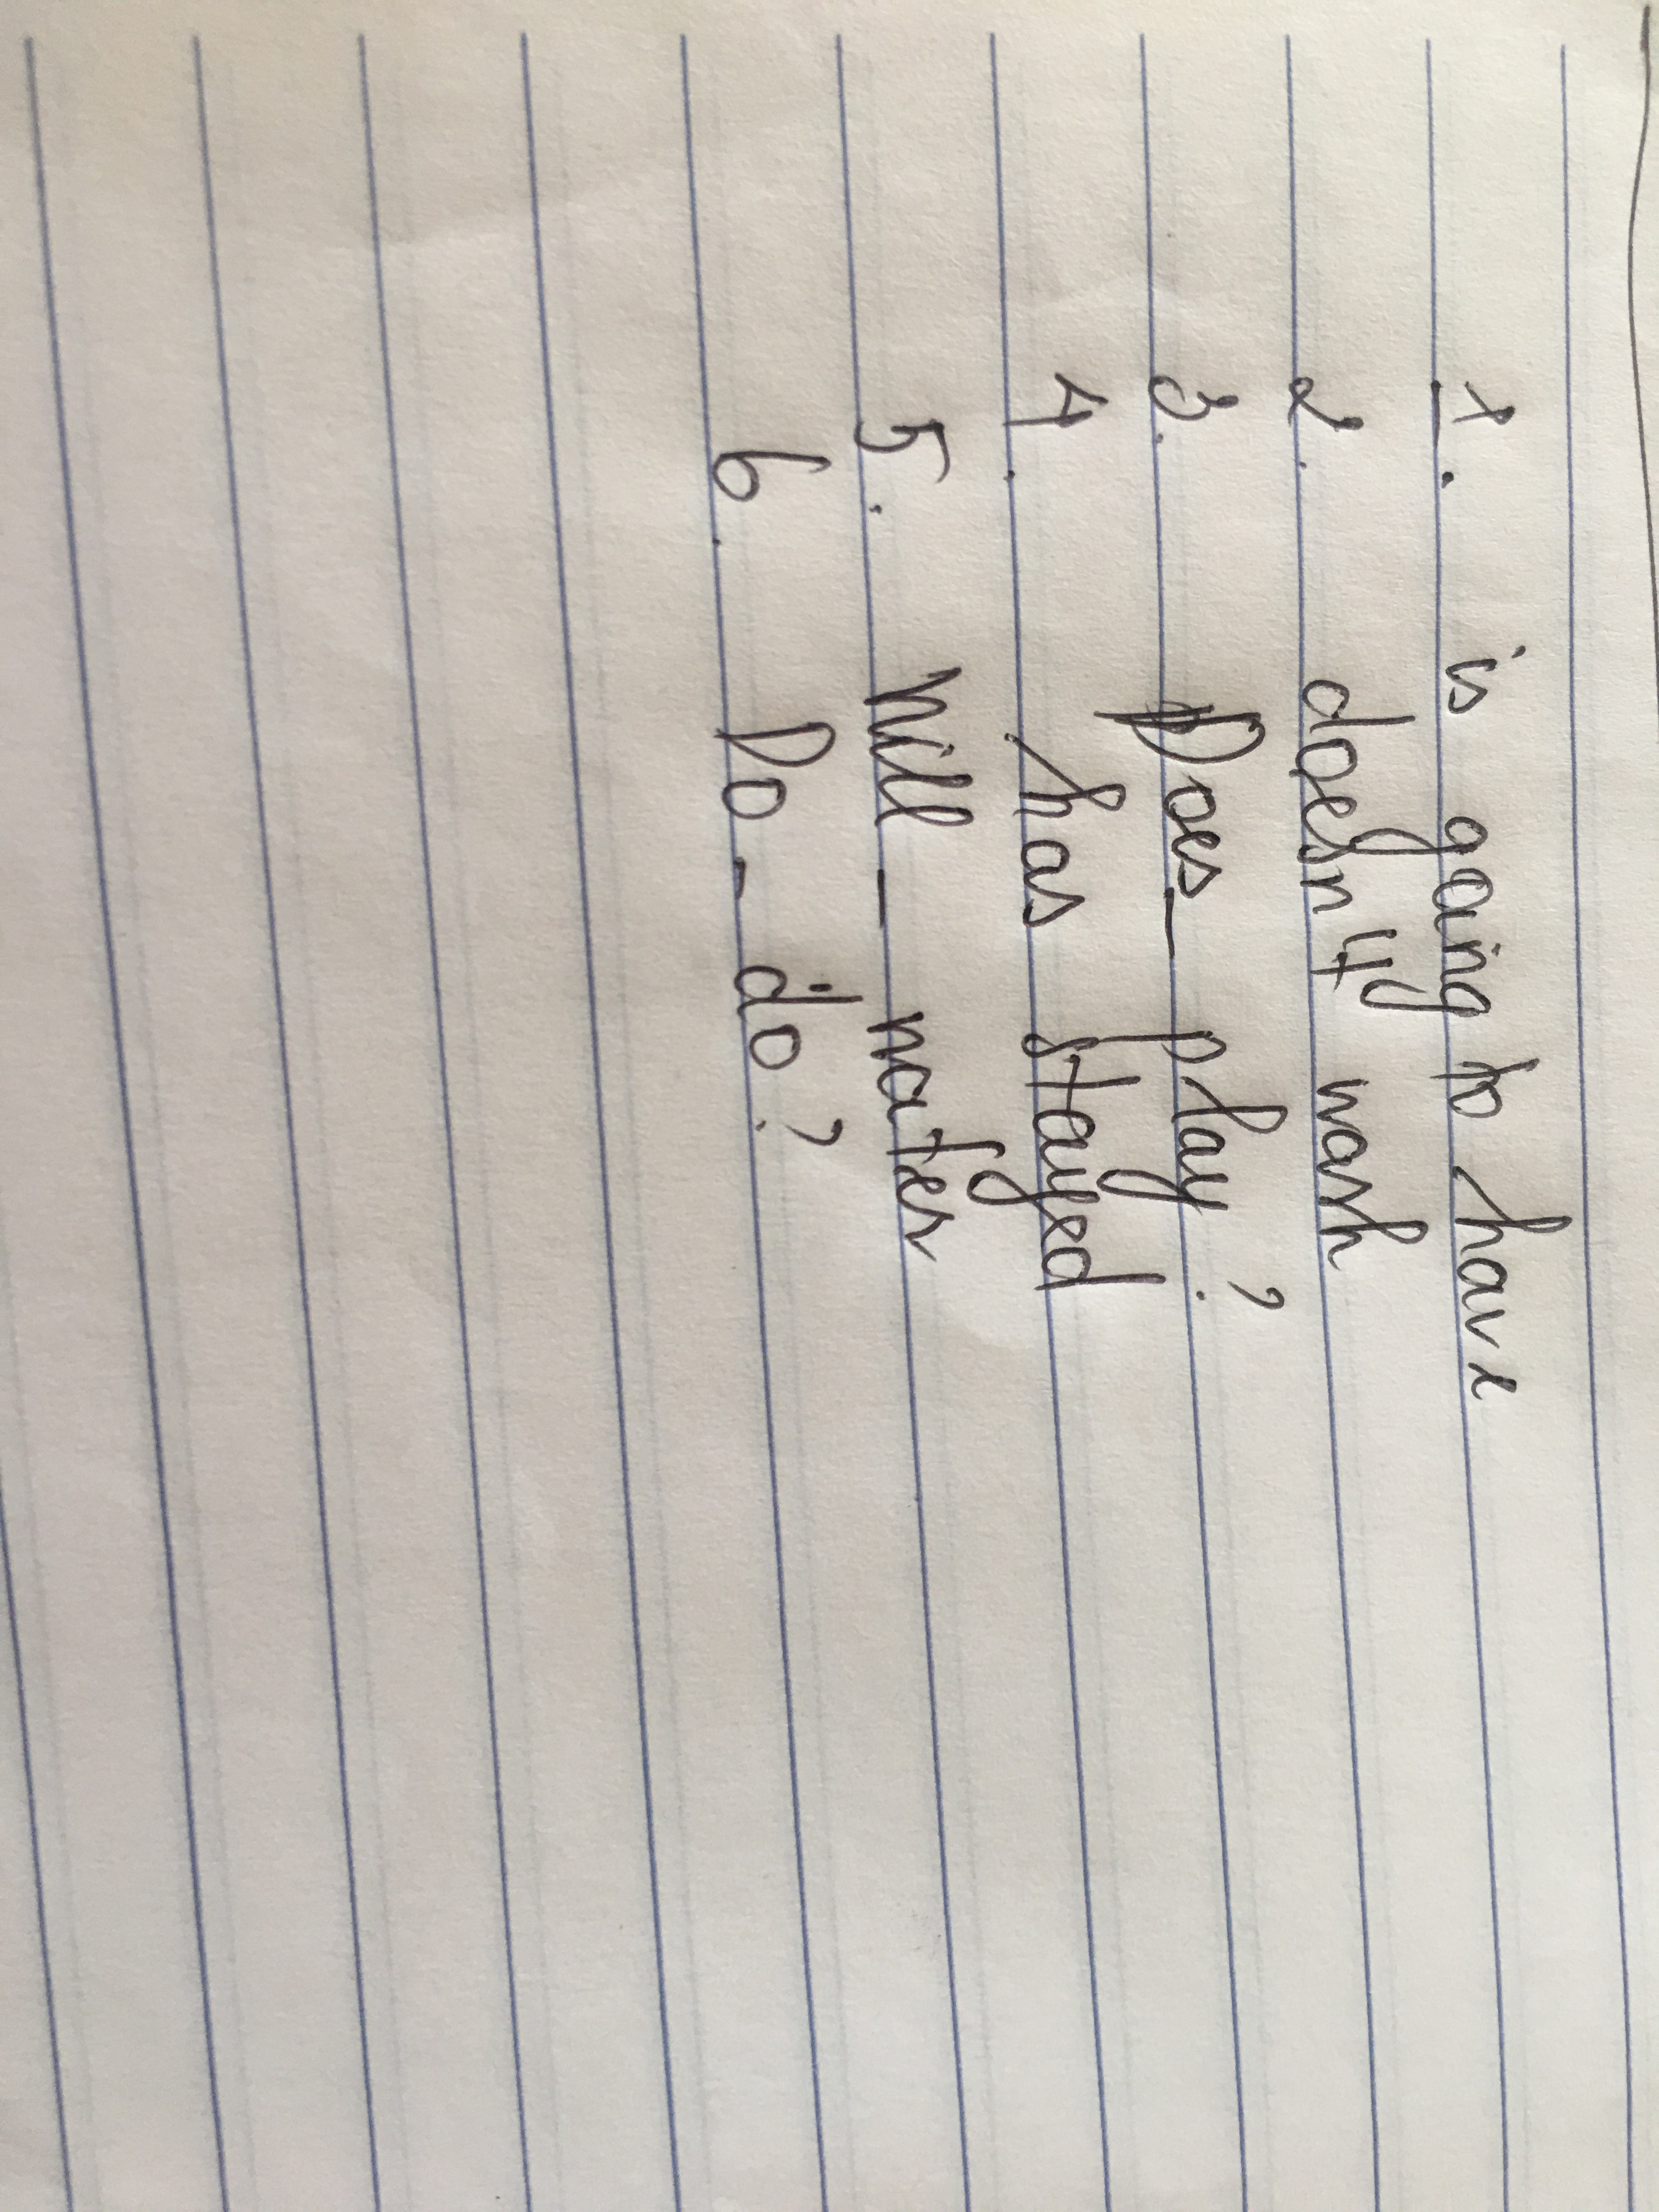 1. is going to have
2. doesn't wash
3. Does - play?
4. has stayed
5. Will - water
6. Do - do?